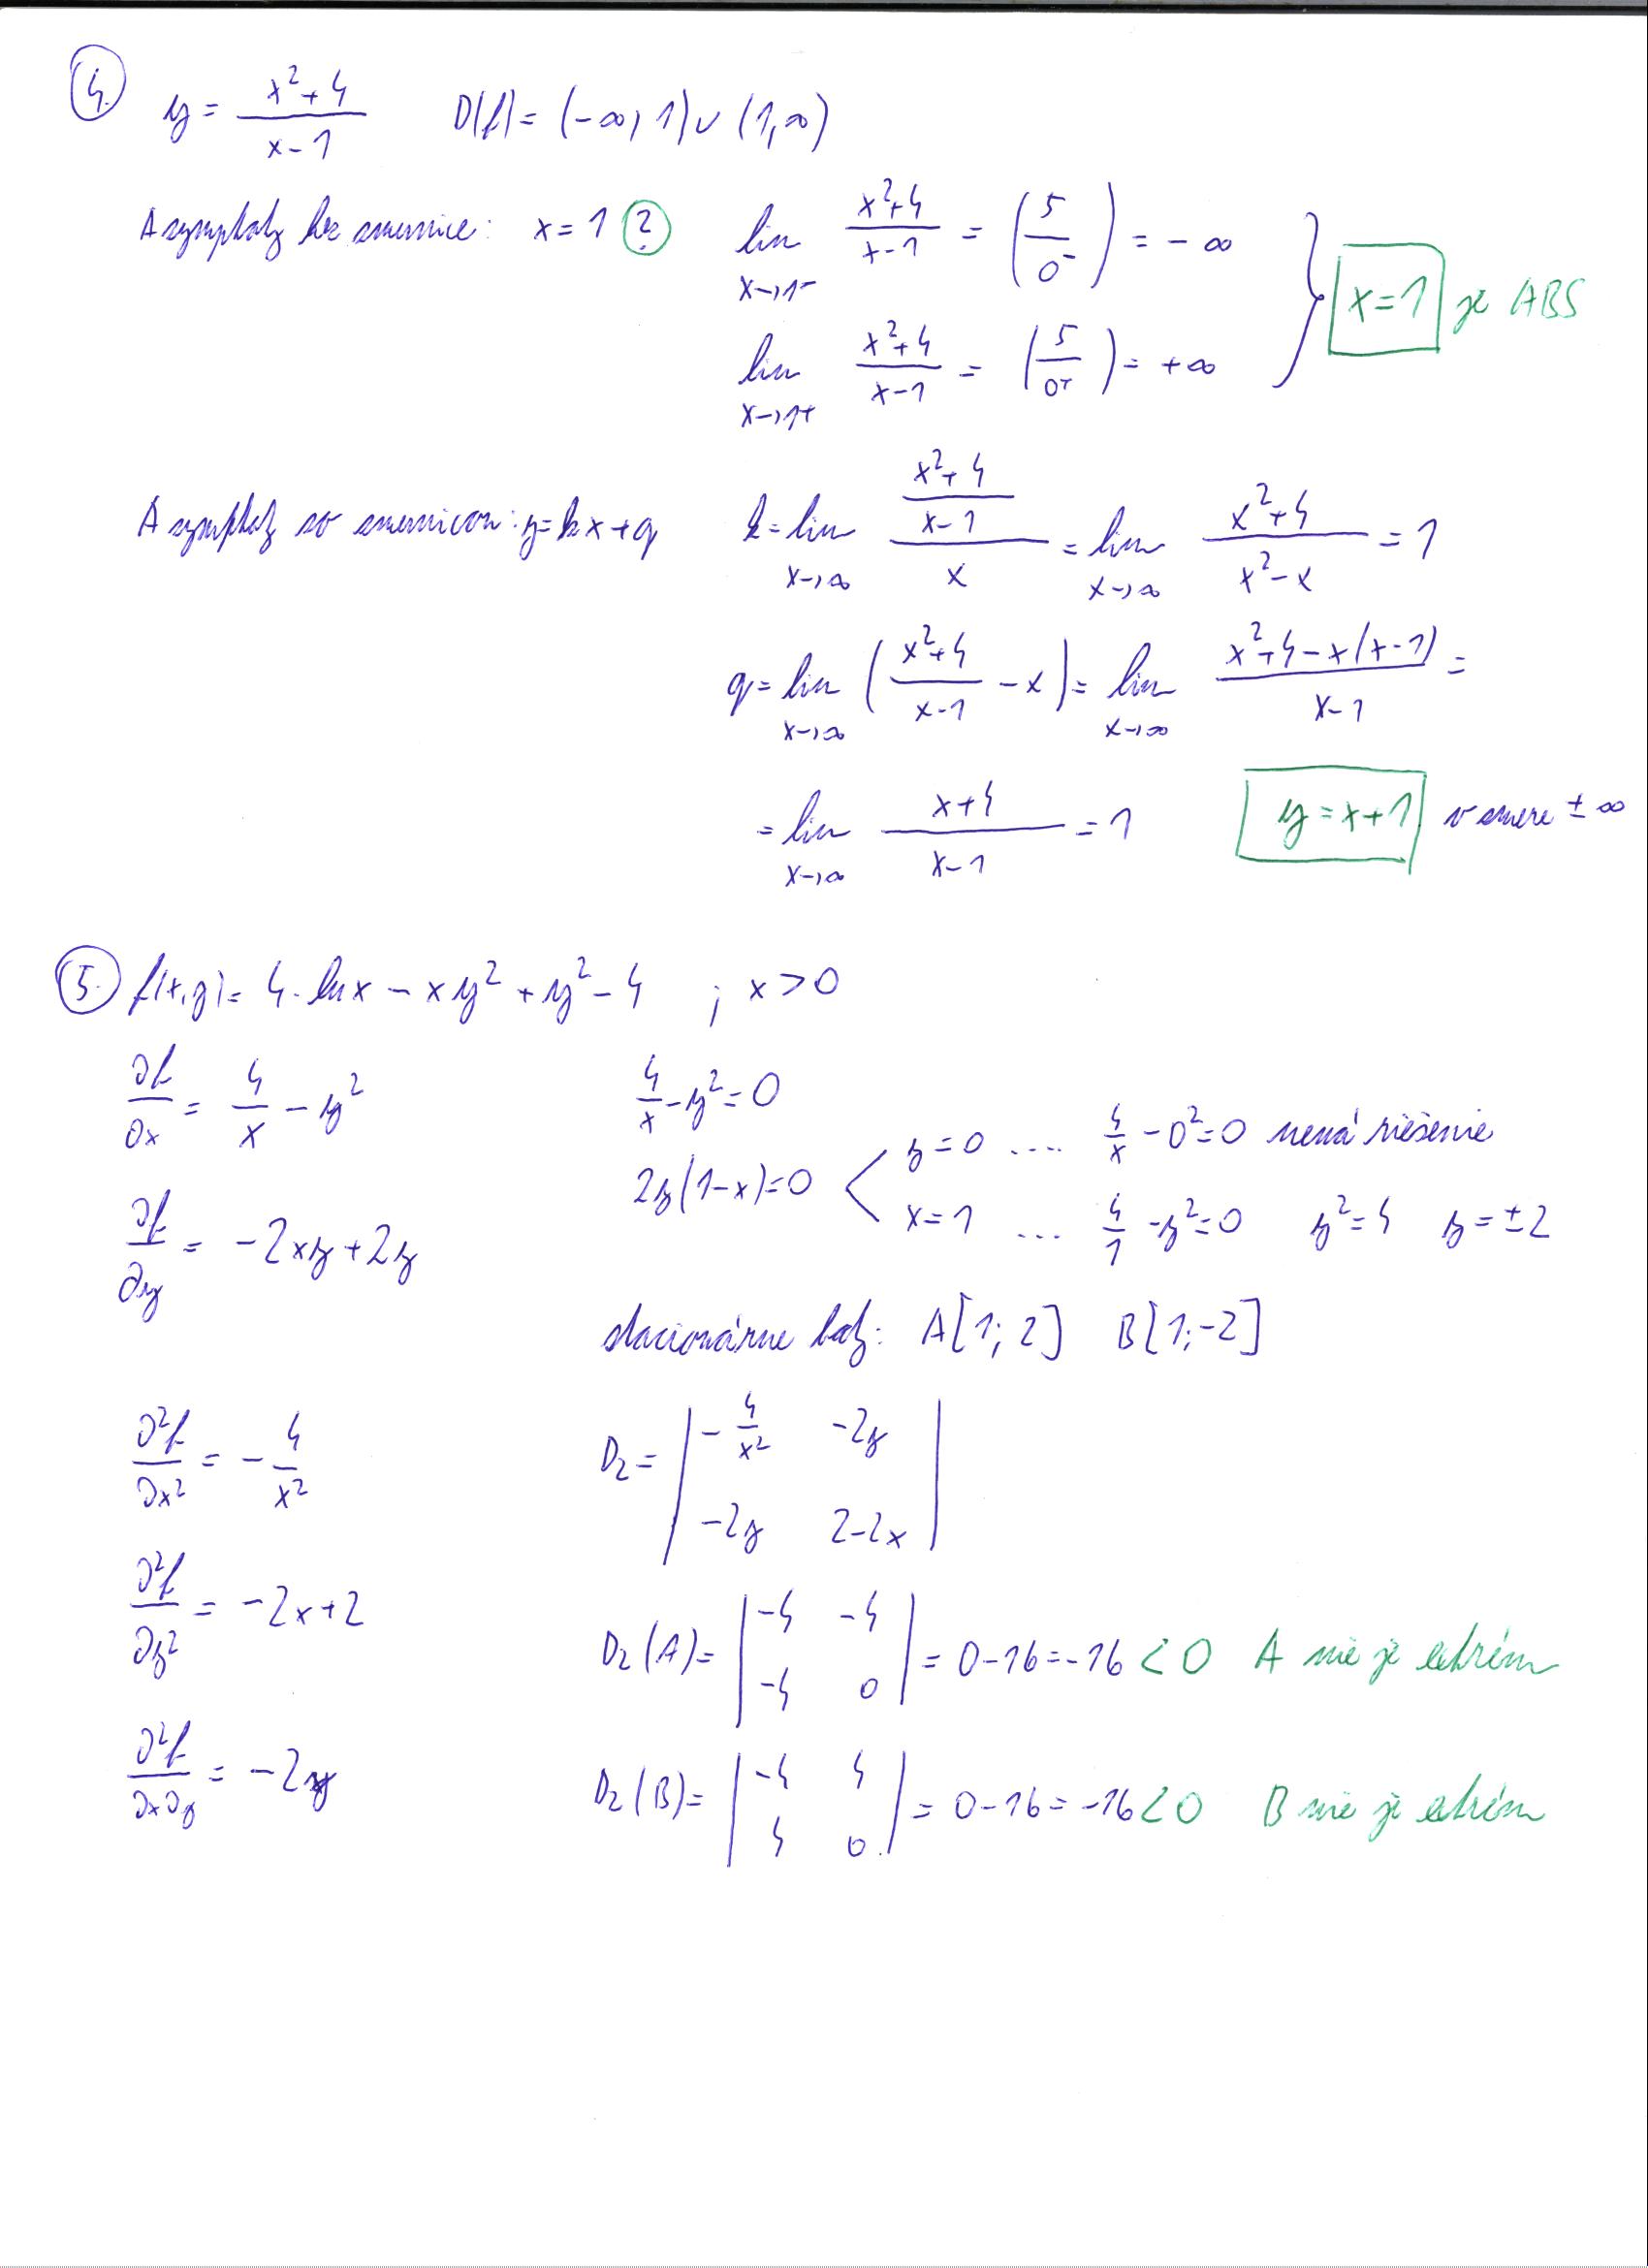 4. y = \frac{x^2+4}{x-1} D(f) = (-∞, 1) ∪ (1, ∞)
Asymptoty bez smernice: x = 1 ? \lim_{x→1^-} \frac{x^2+4}{x-1} = (\frac{5}{0^-}) = -∞
\lim_{x→1^+} \frac{x^2+4}{x-1} = (\frac{5}{0^+}) = +∞ } x = 1 je ABS
Asymptoty so smernicou: y = kx + q k = \lim_{x→∞} \frac{\frac{x^2+4}{x-1}}{x} = \lim_{x→∞} \frac{x^2+4}{x^2-x} = 1
q = \lim_{x→∞} (\frac{x^2+4}{x-1} - x) = \lim_{x→∞} \frac{x^2+4-x(x-1)}{x-1} =
= \lim_{x→∞} \frac{x+4}{x-1} = 1 y = x+1 v smere ± ∞
5. f(x,y) = 4·ln x - xy^2 + y^2 - 4 ; x > 0
\frac{∂f}{∂x} = \frac{4}{x} - y^2 \frac{4}{x} - y^2 = 0
2y(1-x) = 0 < y = 0 .... \frac{4}{x} - 0^2 = 0 nemá riešenie
x = 1 ... \frac{4}{1} - y^2 = 0 y^2 = 4 y = ±2
\frac{∂f}{∂y} = -2xy + 2y
stacionárne body: A[1; 2] B[1; -2]
\frac{∂^2f}{∂x^2} = -\frac{4}{x^2} D_2 = | -\frac{4}{x^2} -2y |
| -2y 2-2x |
\frac{∂^2f}{∂y^2} = -2x+2
D_2(A) = | -4 -4 |
| -4 0 | = 0-16 = -16 < 0 A nie je extrém
\frac{∂^2f}{∂x∂y} = -2y
D_2(B) = | -4 4 |
| 4 0 | = 0-16 = -16 < 0 B nie je extrém